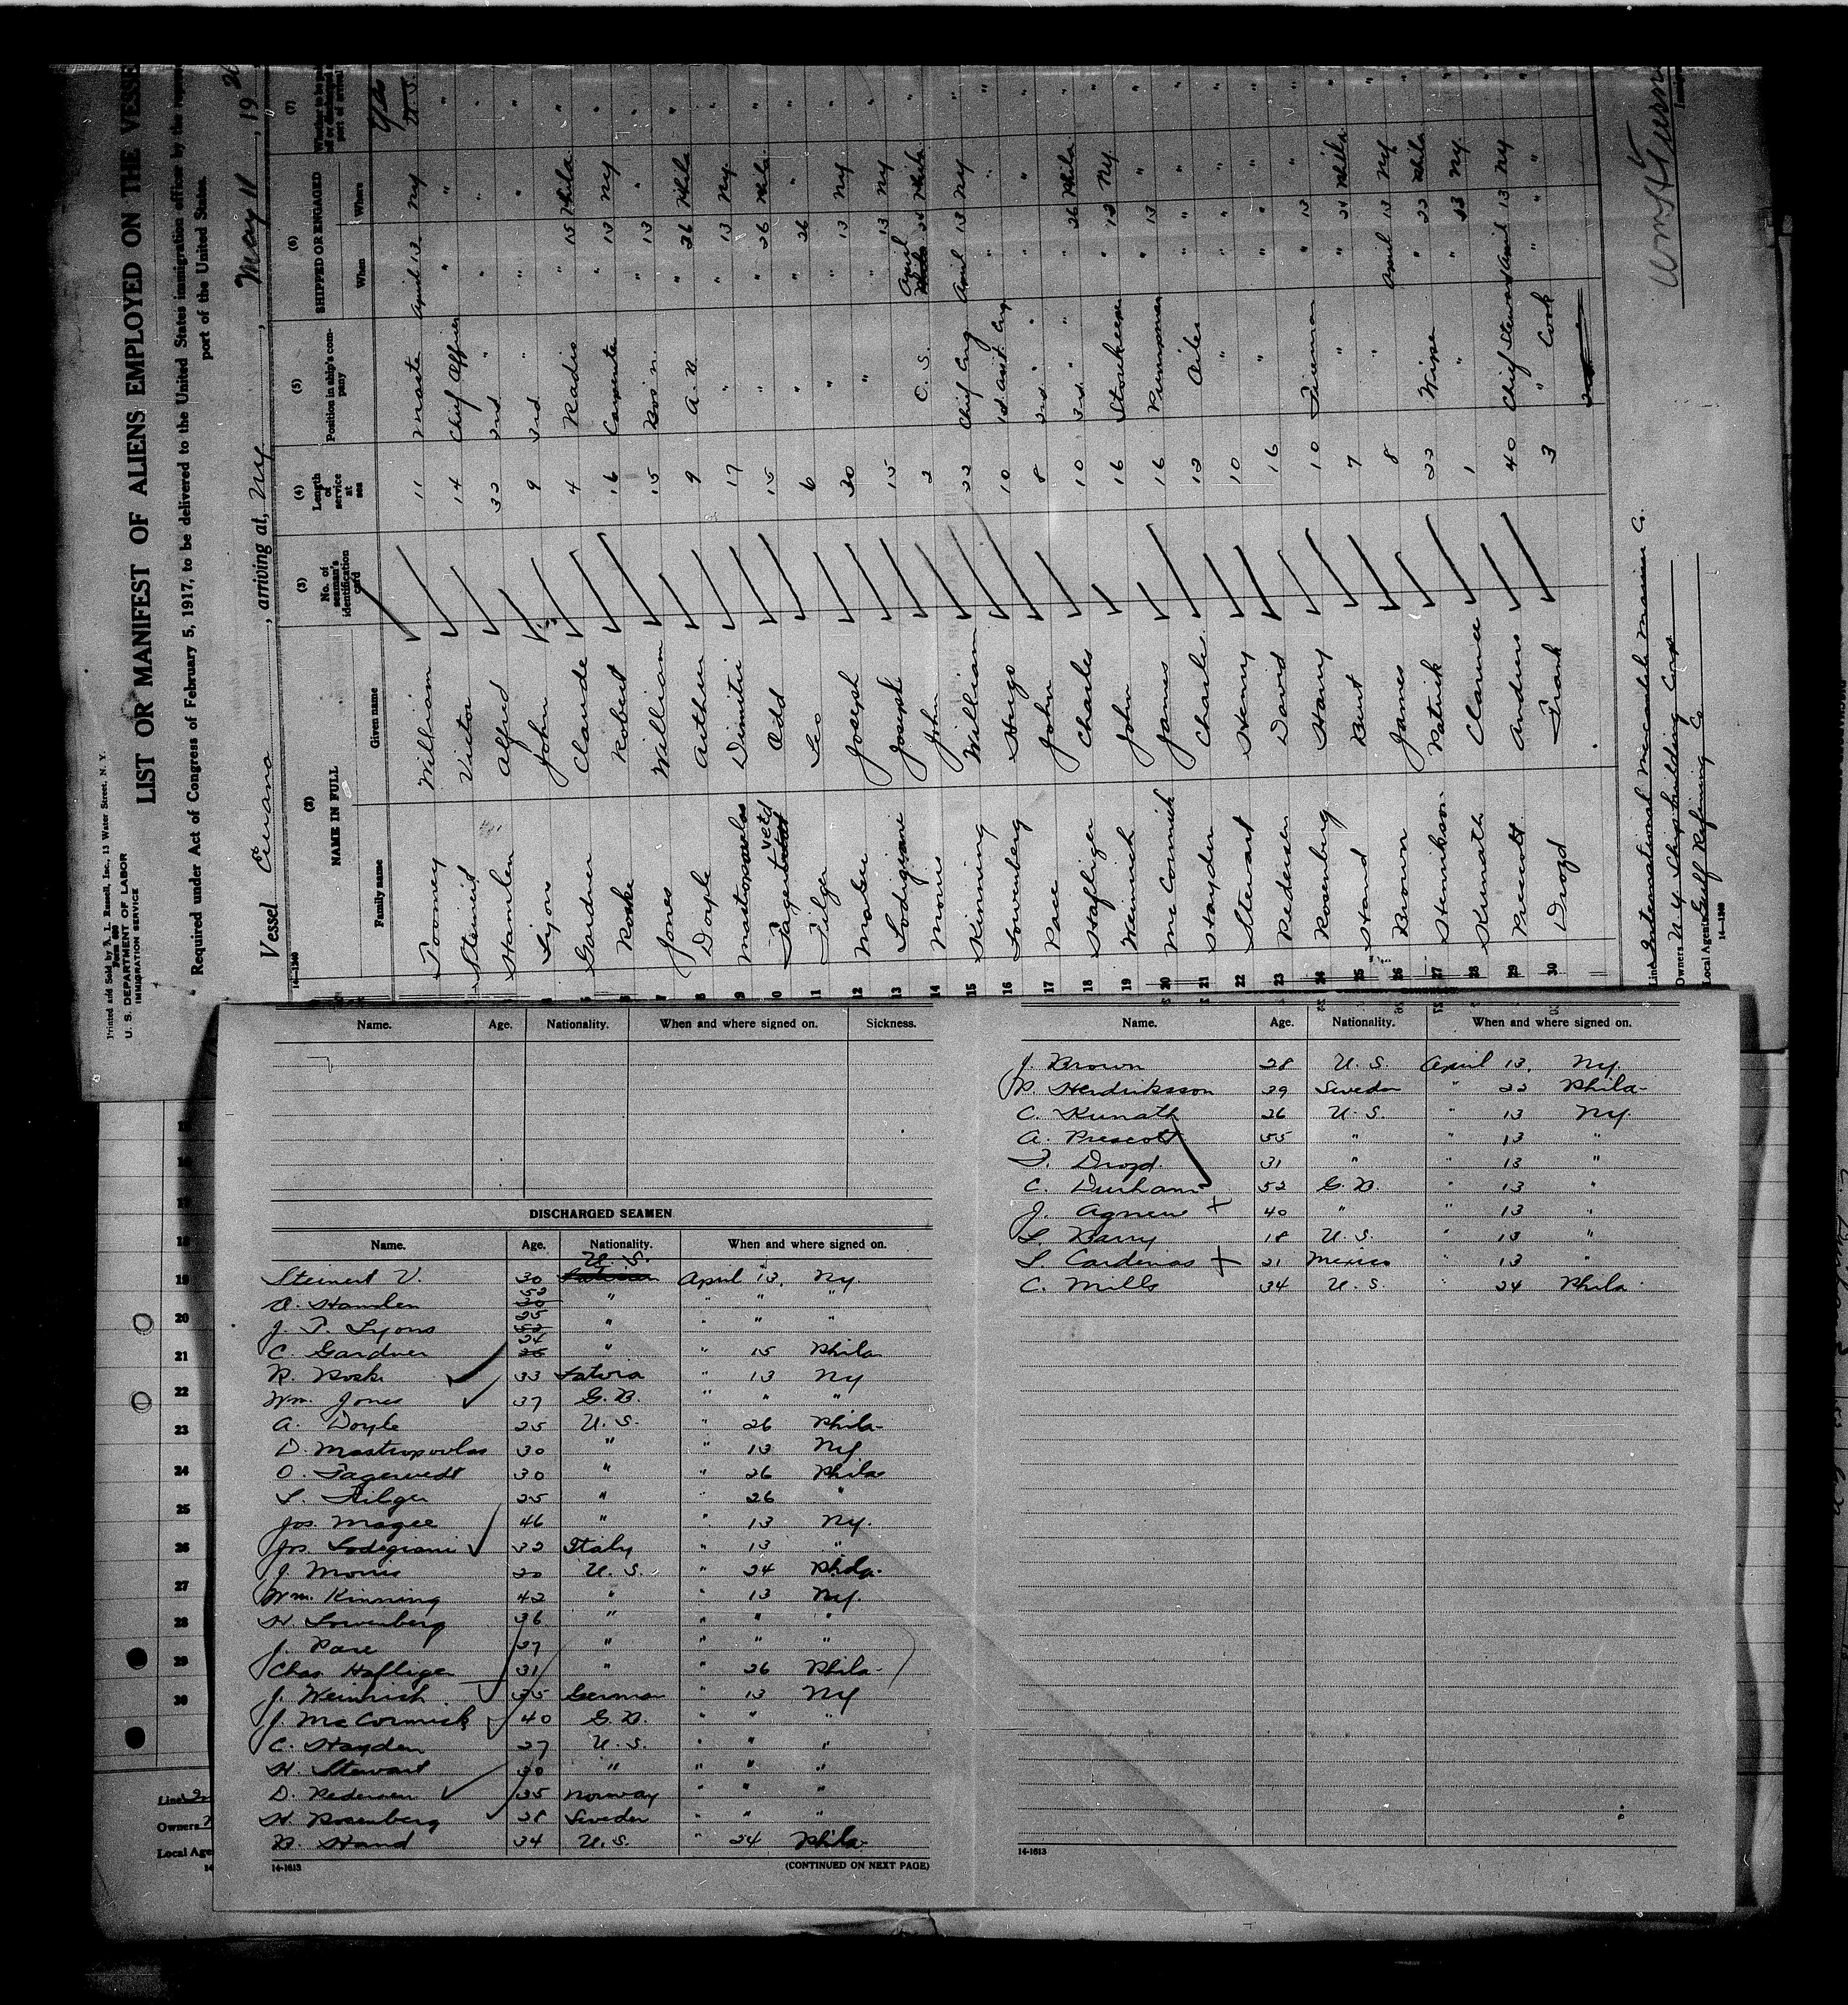 Printed and Sold by A. L. Russell, Inc., 13 Water Street, N. Y.
U. S. DEPARTMENT OF LABOR
IMMIGRATION SERVICE
LIST OR MANIFEST OF ALIENS EMPLOYED ON THE VESSE
Required under Act of Congress of February 5, 1917, to be delivered to the United States immigration officer by the
port of the United States.
Vessel , arriving at, NY , May 11 , 19 26
14—1240
(2) (3) (4) (5) (6) (7)
NAME IN FULL No. of seaman's identification card Length of service at sea Position in ship's company SHIPPED OR ENGAGED
Family name Given name When Where
Toomey William 11 Mate April 13 NY
Steinert Victor 14 Chief Officer " "
Hamlen Alfred 32 2nd " " "
Lyons John 9 3rd " " "
Gardner Claude 4 Radio " 15 Phila
Roske Robert 16 Carpenter " 13 NY
7 Jones William 15 Bos'n. " 13 "
8 Doyle Arthur 9 A.B. " 26 Phila
9 Mastropoulos Dimitri 17 " " 13 NY.
10 Fagertvedt Odd 15 " " 26 Phila.
11 Filger Geo 6 " " 26 "
12 Magee Joseph 30 " " 13 NY
13 Lodigiani Joseph 15 " 13 NY
14 Morris John 2 O. S. April 24 Phila
15 Kinning William 22 Chief Eng April 13 NY
16 Lowenberg Hugo 10 1st Asst. Eng " " "
17 Pace John 8 2nd " " " "
18 Hafliger Charles 10 3rd " " 26 Phila
19 Weinrich John 16 Storekeeper " 13 NY
20 McCormick James 16 Pumpman " 13 "
21 Hayden Charles 12 Oiler " " "
22 Stewart Henry 10 " " " "
23 Pedersen David 16 " " " "
24 Rosenberg Harry 10 Fireman " 13 "
25 Hand Burt 7 " " 24 Phila
26 Brown James 8 " April 13 NY
27 Henrikson Patrik 22 Wiper " 22 Phila
28 Kunath Clarence 1 " " 13 NY.
29 Prescott Andrew 40 Chief Steward April 13 NY
30 Drozd Frank 3 " Cook " " "
Line International Mercantile Marine Co.
Owners N.Y. Shipbuilding Corp
Local Agents Gulf Refining Co
14—1240
Name. Age. Nationality. When and where signed on. Sickness.
DISCHARGED SEAMEN
Name. Age. Nationality. When and where signed on.
Steinert V. 30 U. S. April 13, NY.
A. Hamlen 52 " " " "
J. T. Lyons 25 " " " "
C. Gardner 24 " " 15 Phila
R. Roske 33 Latvia " 13 NY
Wm. Jones 37 G.B. " " "
A. Doyle 25 U. S. " 26 Phila-
D. Mastropoulos 30 " " 13 NY
O. Fagervedt 30 " " 26 Phila
Filger 25 " " 26 "
Jos. Magee 46 " " 13 NY.
Jos. Lodigiani 32 Italy " 13 "
J. Morris 20 U. S. " 24 Phila.
Wm. Kinning 42 " " 13 NY.
H. Lowenberg 36 " " " "
J. Pace 27 " " " "
Chas Hafliger 31 " " 26 Phila-
J. Weinrich 35 German " 13 NY
J. McCormick 40 G.B. " " "
C. Hayden 27 U. S. " " "
H. Stewart 30 " " " "
D. Pedersen 35 Norway " " "
H. Rosenberg 28 Sweden " " "
B. Hand 34 U.S. " 24 Phila-
14-1613 (CONTINUED ON NEXT PAGE)
Name. Age. Nationality. When and where signed on.
J. Brown 28 U. S. April 13, NY.
P. Hendriksson 39 Sweden " 22 Phila-
C. Kunath 26 U. S. " 13 NY.
A. Prescott 55 " " 13 "
F. Drozd. 31 " " 13 "
C. Durham 52 G.B. " 13 "
J. Agnew + 40 " " 13 "
L. Barry 18 U. S. " 13 "
L. Cardenas + 21 Mexico " 13 "
C. Mills 34 U. S. " 24 Phila.
14-1613
19
20
21
22
23
24
25
26
27
28
29
30
Line
Owners
Local Age
14